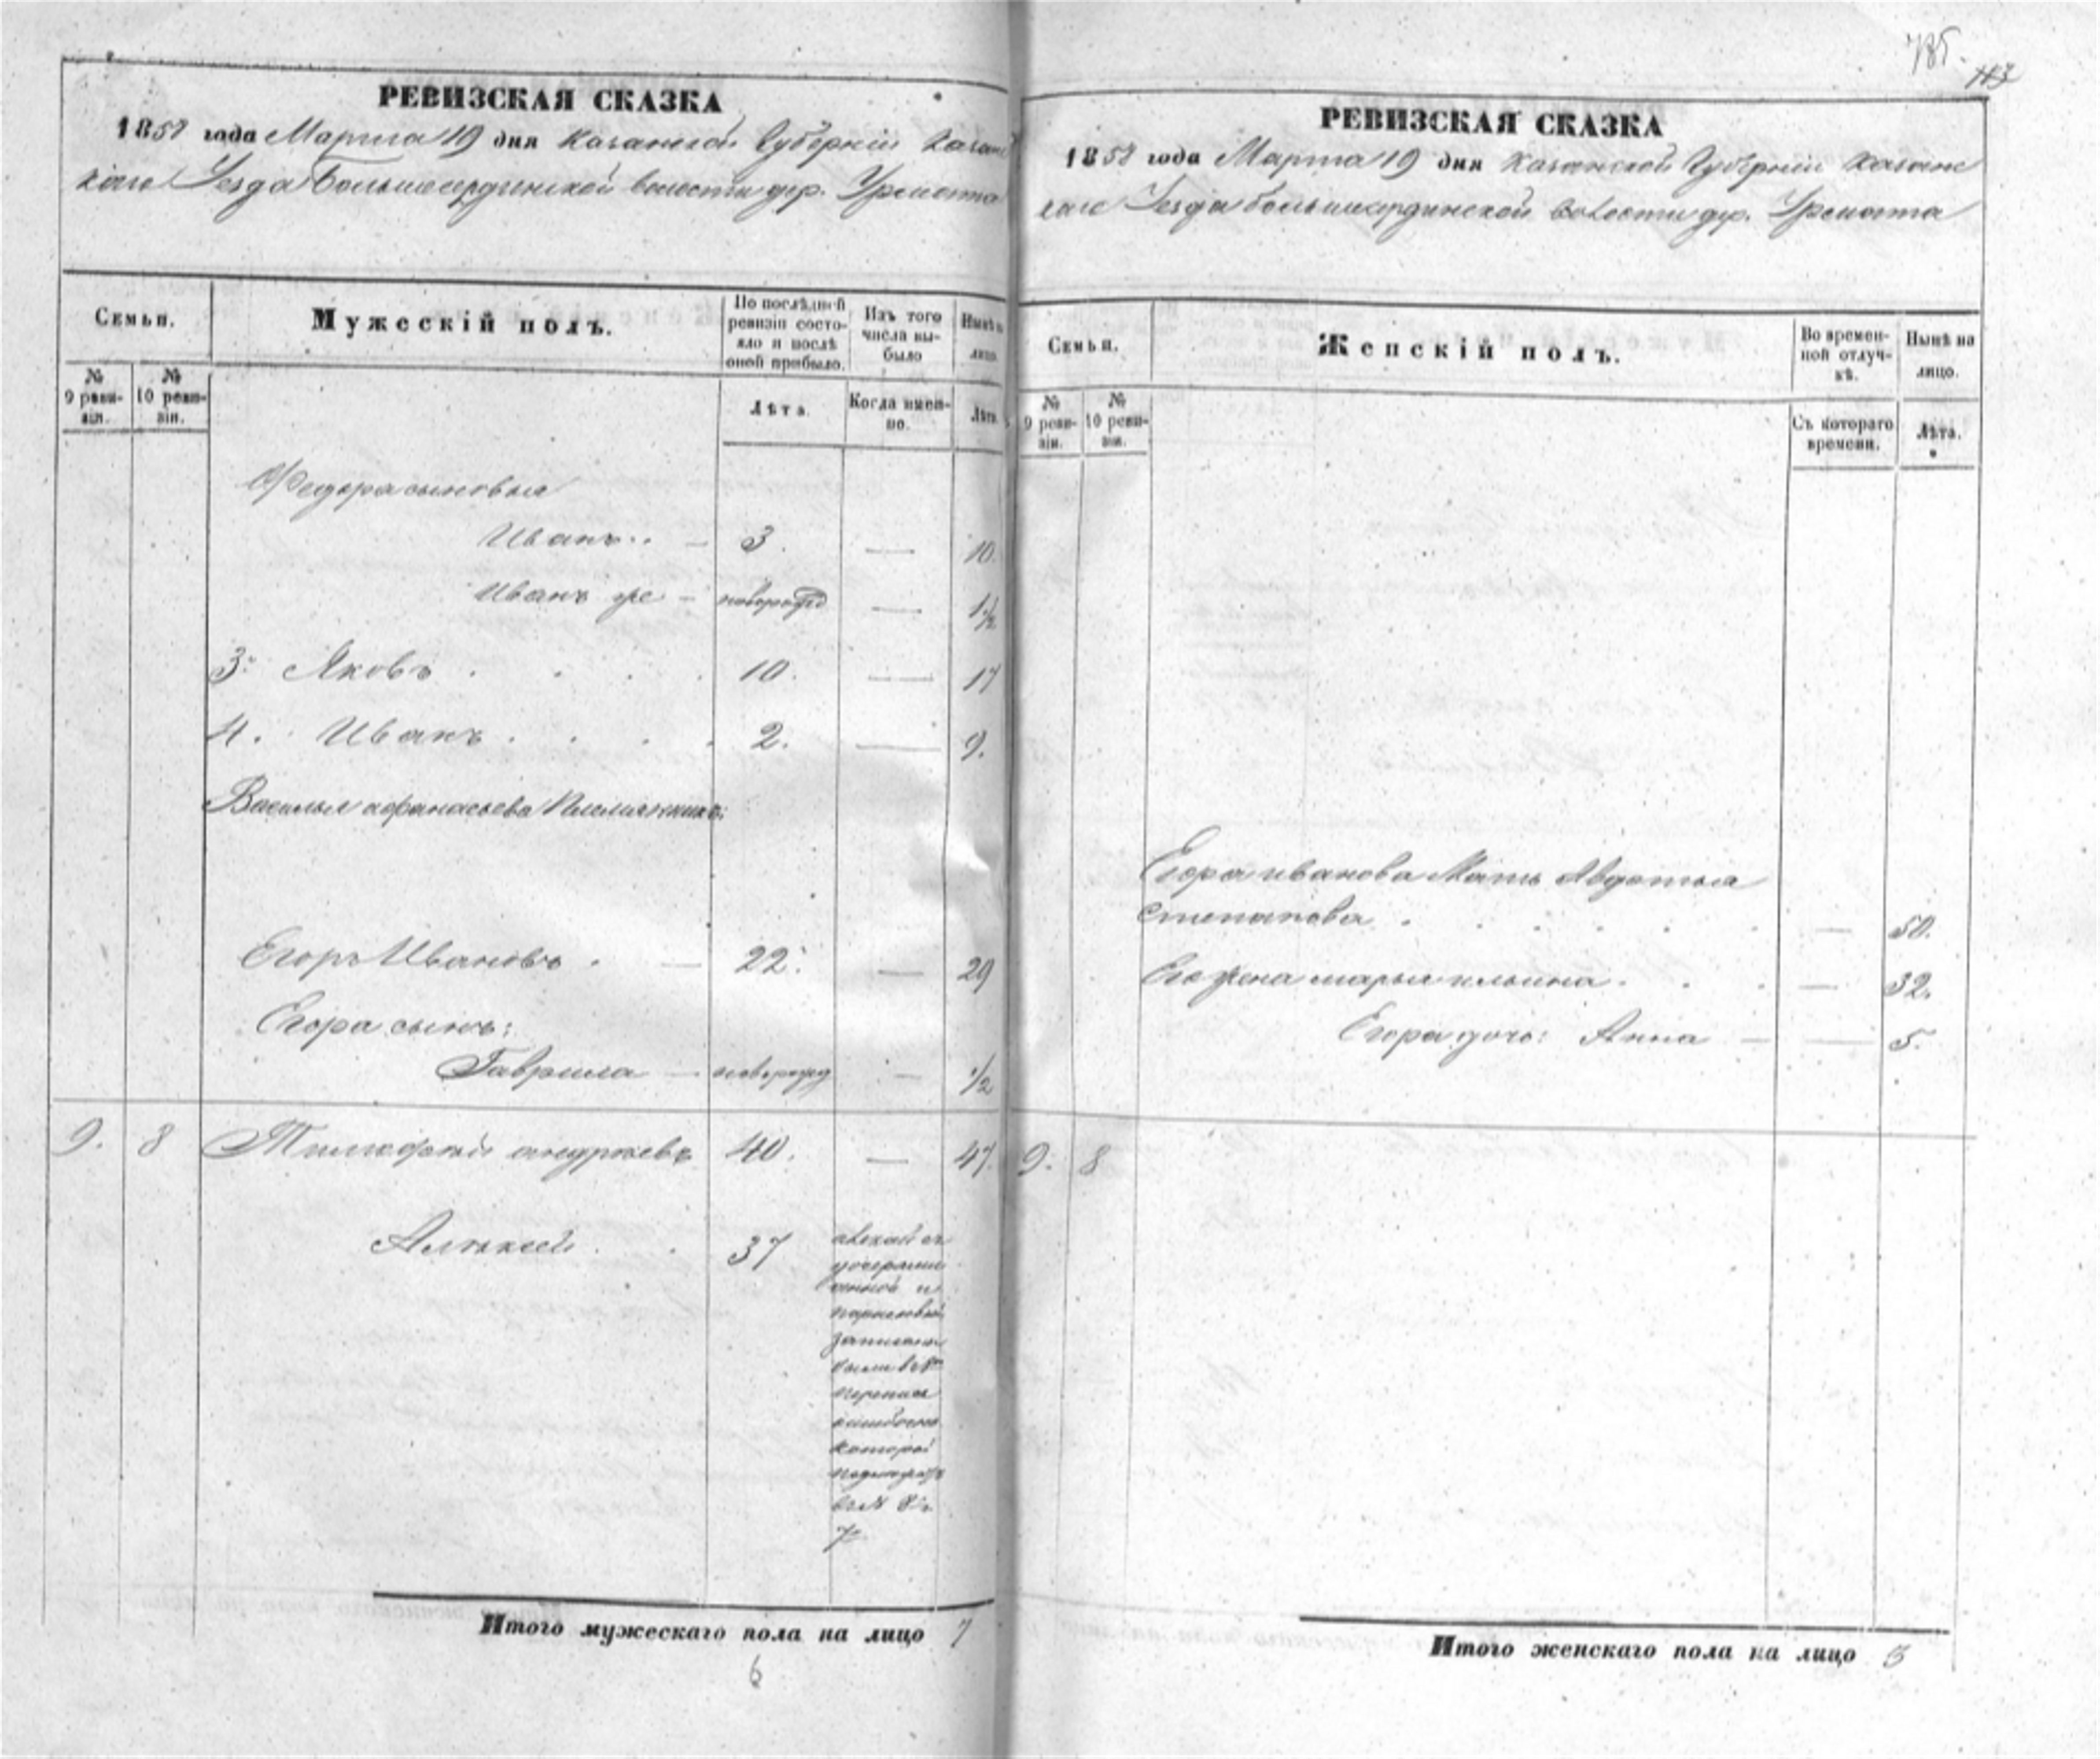 785.
113
РЕВИЗСКАЯ СКАЗКА
1858 года Марта 19 дня Казанской Губерніи Казан
каго Уезда Большесердинской волости дер. Урематa
Семьи.
Мужескій полъ.
По послѣдней ревизіи состояло и послѣ оной прибыло.
Изъ того числа выбыло
Нынѣ на лицо.
№ 9 ревизіи.
№ 10 ревизіи.
Лѣта.
Когда именно.
Лѣта.
Федора сыновья
Иванъ.. — 3. — 10.
Иванъ же — новорожд — 1 1/2
3. Яковъ . . . . 10. — 17
4. Иванъ . . . . 2. — 9.
Василья афанасьева Племянникъ:
Егоръ Ивановъ . — 22. — 29
Егора сынъ:
Гаврила — новорожд — 1/2
9. 8 40. — 47.
Алексей . . 37
записанъ
которой
7.
Итого мужескаго пола на лицо 7
6
РЕВИЗСКАЯ СКАЗКА
1858 года Марта 19 дня Казанской Губерніи Казанс
каго Уезда большесердинской волости дер. Урематa
Семьи.
Женскій полъ.
Во временной отлучкѣ.
Нынѣ на лицо.
№ 9 ревизіи.
№ 10 ревизіи.
Съ котораго времени.
Лѣта.
Егора иванова Мать Авдотья
Степанова . . . . . . — 50.
Его жена марья ильина . . . — 32.
Егора дочь: Анна — — 5.
9. 8
Итого женскаго пола на лицо 3